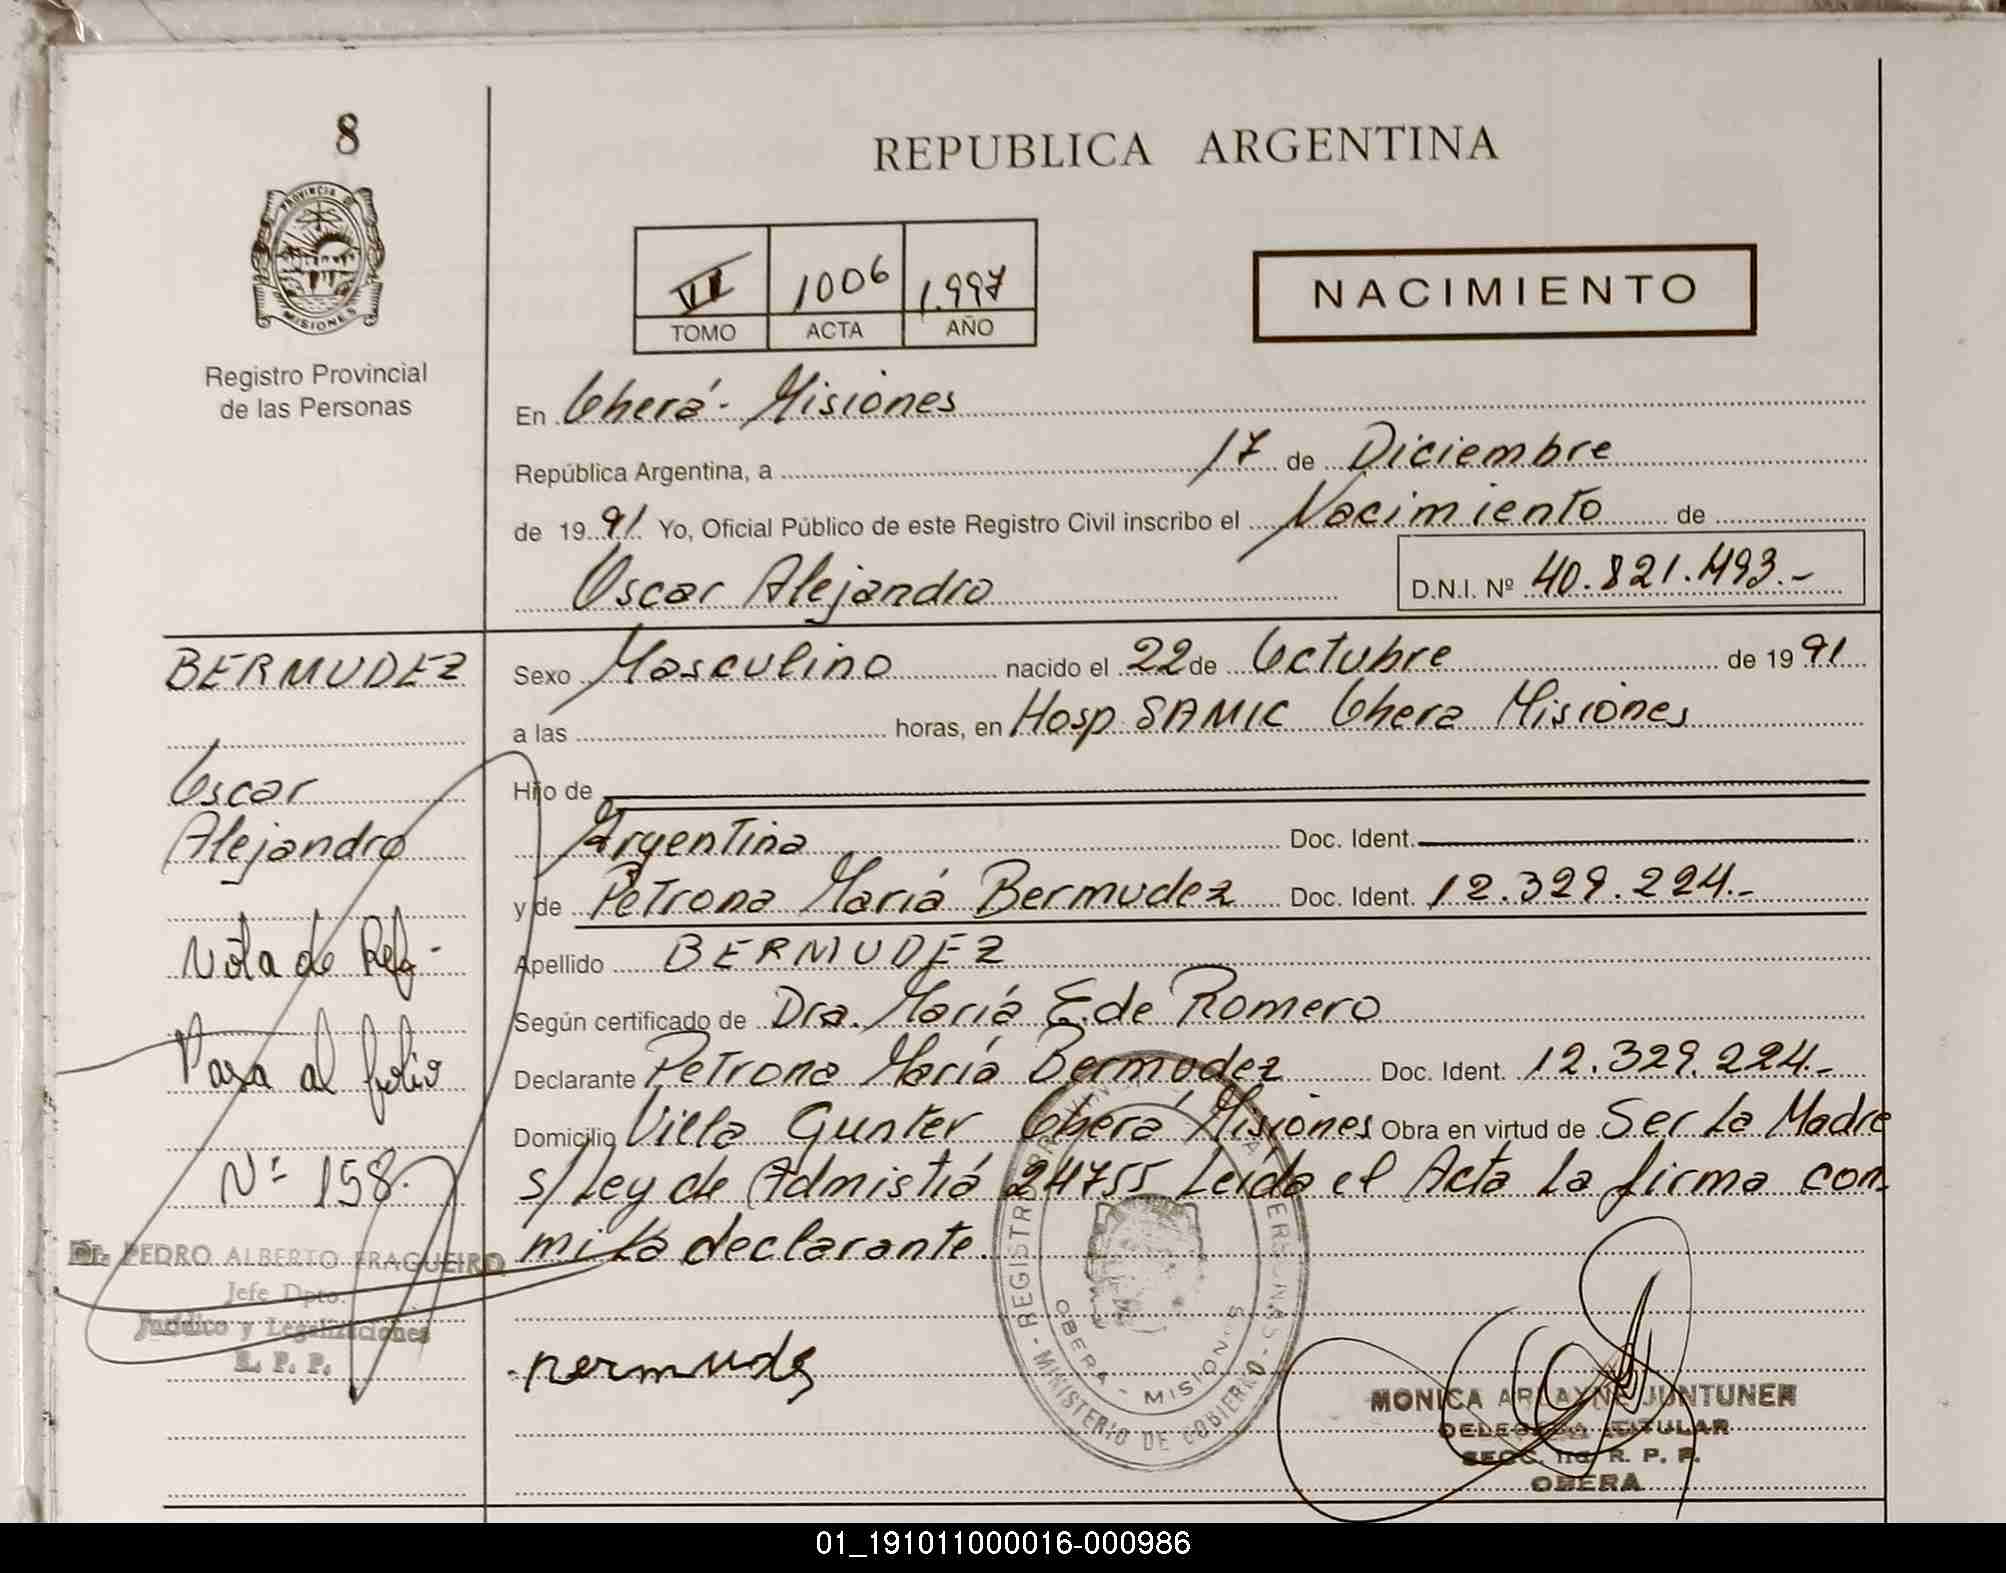 8
REPUBLICA ARGENTINA
PROVINCIA DE
MISIONES
Registro Provincial
de las Personas
VI 1006 1.997
TOMO ACTA AÑO
NACIMIENTO
En Oberá - Misiones
República Argentina, a 17 de Diciembre
de 1991 Yo, Oficial Público de este Registro Civil inscribo el Nacimiento de
Oscar Alejandro D.N.I. Nº 40.821.493.-
BERMUDEZ
Oscar
Alejandro
Nota de Ref-
Pasa al folio
Nº 158.
Dr. PEDRO ALBERTO FRAGUEIRO
Jefe Dpto.
Jurídico y Legalizaciones
R. P. P.
Sexo Masculino nacido el 22 de Octubre de 1991
a las horas, en Hosp SAMIC Obera Misiones
Hijo de
Argentina Doc. Ident.
y de Petrona María Bermudez Doc. Ident. 12.329.224.-
Apellido BERMUDEZ
Según certificado de Dra. María E. de Romero
Declarante Petrona María Bermudez Doc. Ident. 12.329.224.-
Domicilio Villa Gunter Oberá Misiones Obra en virtud de Ser la Madre
s/Ley de Admistiá 24755 Leída el Acta la firma con
mi la declarante.
REGISTRO PROVINCIAL DE LAS PERSONAS
OBERA - MISIONES
MINISTERIO DE GOBIERNO
MONICA ARLAYNE JUNTUNEN
DELEGADA TITULAR
SECC. 1ra R. P. P.
OBERA
01_191011000016-000986